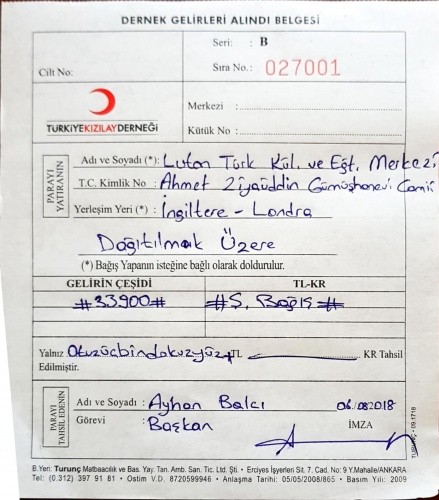 DERNEK GELİRLERİ ALINDI BELGESİ
Seri: B
Cilt No:
Sıra No.: 027001
TÜRKİYEKIZILAYDERNEĞİ
Merkezi :
Kütük No :
PARAYI YATIRANIN
Adı ve Soyadı (*): Luton Türk Kül. ve Eğt. Merkezi
T.C. Kimlik No : Ahmet Ziyaüddin Gümüşhanevi Camii
Yerleşim Yeri (*): İngiltere - Londra
Dağıtılmak Üzere
(*) Bağış Yapanın isteğine bağlı olarak doldurulur.
GELİRİN ÇEŞİDİ TL-KR
#33900# #Ş. Bağış#
Yalnız Otuzüçbindokuzyüz TL KR Tahsil
Edilmiştir.
PARAYI TAHSİL EDENİN
Adı ve Soyadı : Ayhan Balcı 06.08.2018
Görevi : Başkan İMZA
TURUNÇ • 091718
B.Yeri: Turunç Matbaacılık ve Bas. Yay. Tan. Amb. San. Tic. Ltd. Şti. • Erciyes İşyerleri Sit. 7. Cad. No: 9 Y.Mahalle/ANKARA
Tel: (0.312) 397 91 81 • Ostim V.D. 8720599946 • Anlaşma Tarihi: 05/05/2008/865 • Basım Yılı: 2009